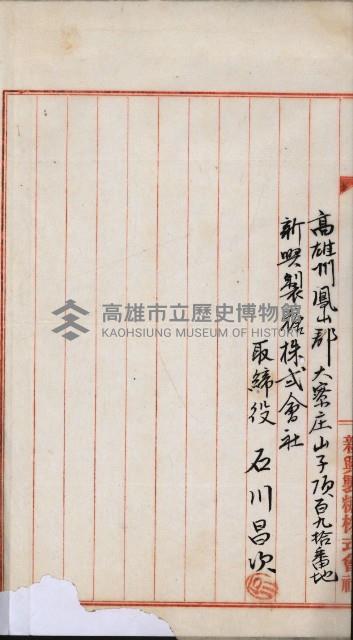 高雄州鳳山郡大寮庄山子頂百九拾番地
新興製糖株式會社
取締役 石川昌次
新興製糖株式會社
高雄市立歷史博物館
KAOHSIUNG MUSEUM OF HISTORY